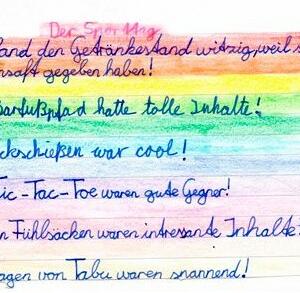 Der Sporttag
fand den Getränkestand witzig, weil s
nsaft gegeben haben!
Barfußpfad hatte tolle Inhalte!
ckschießen war cool!
Tic-Tac-Toe waren gute Gegner!
n Fühlsäcken waren intressante Inhalte
agen von Tabu waren spannend!